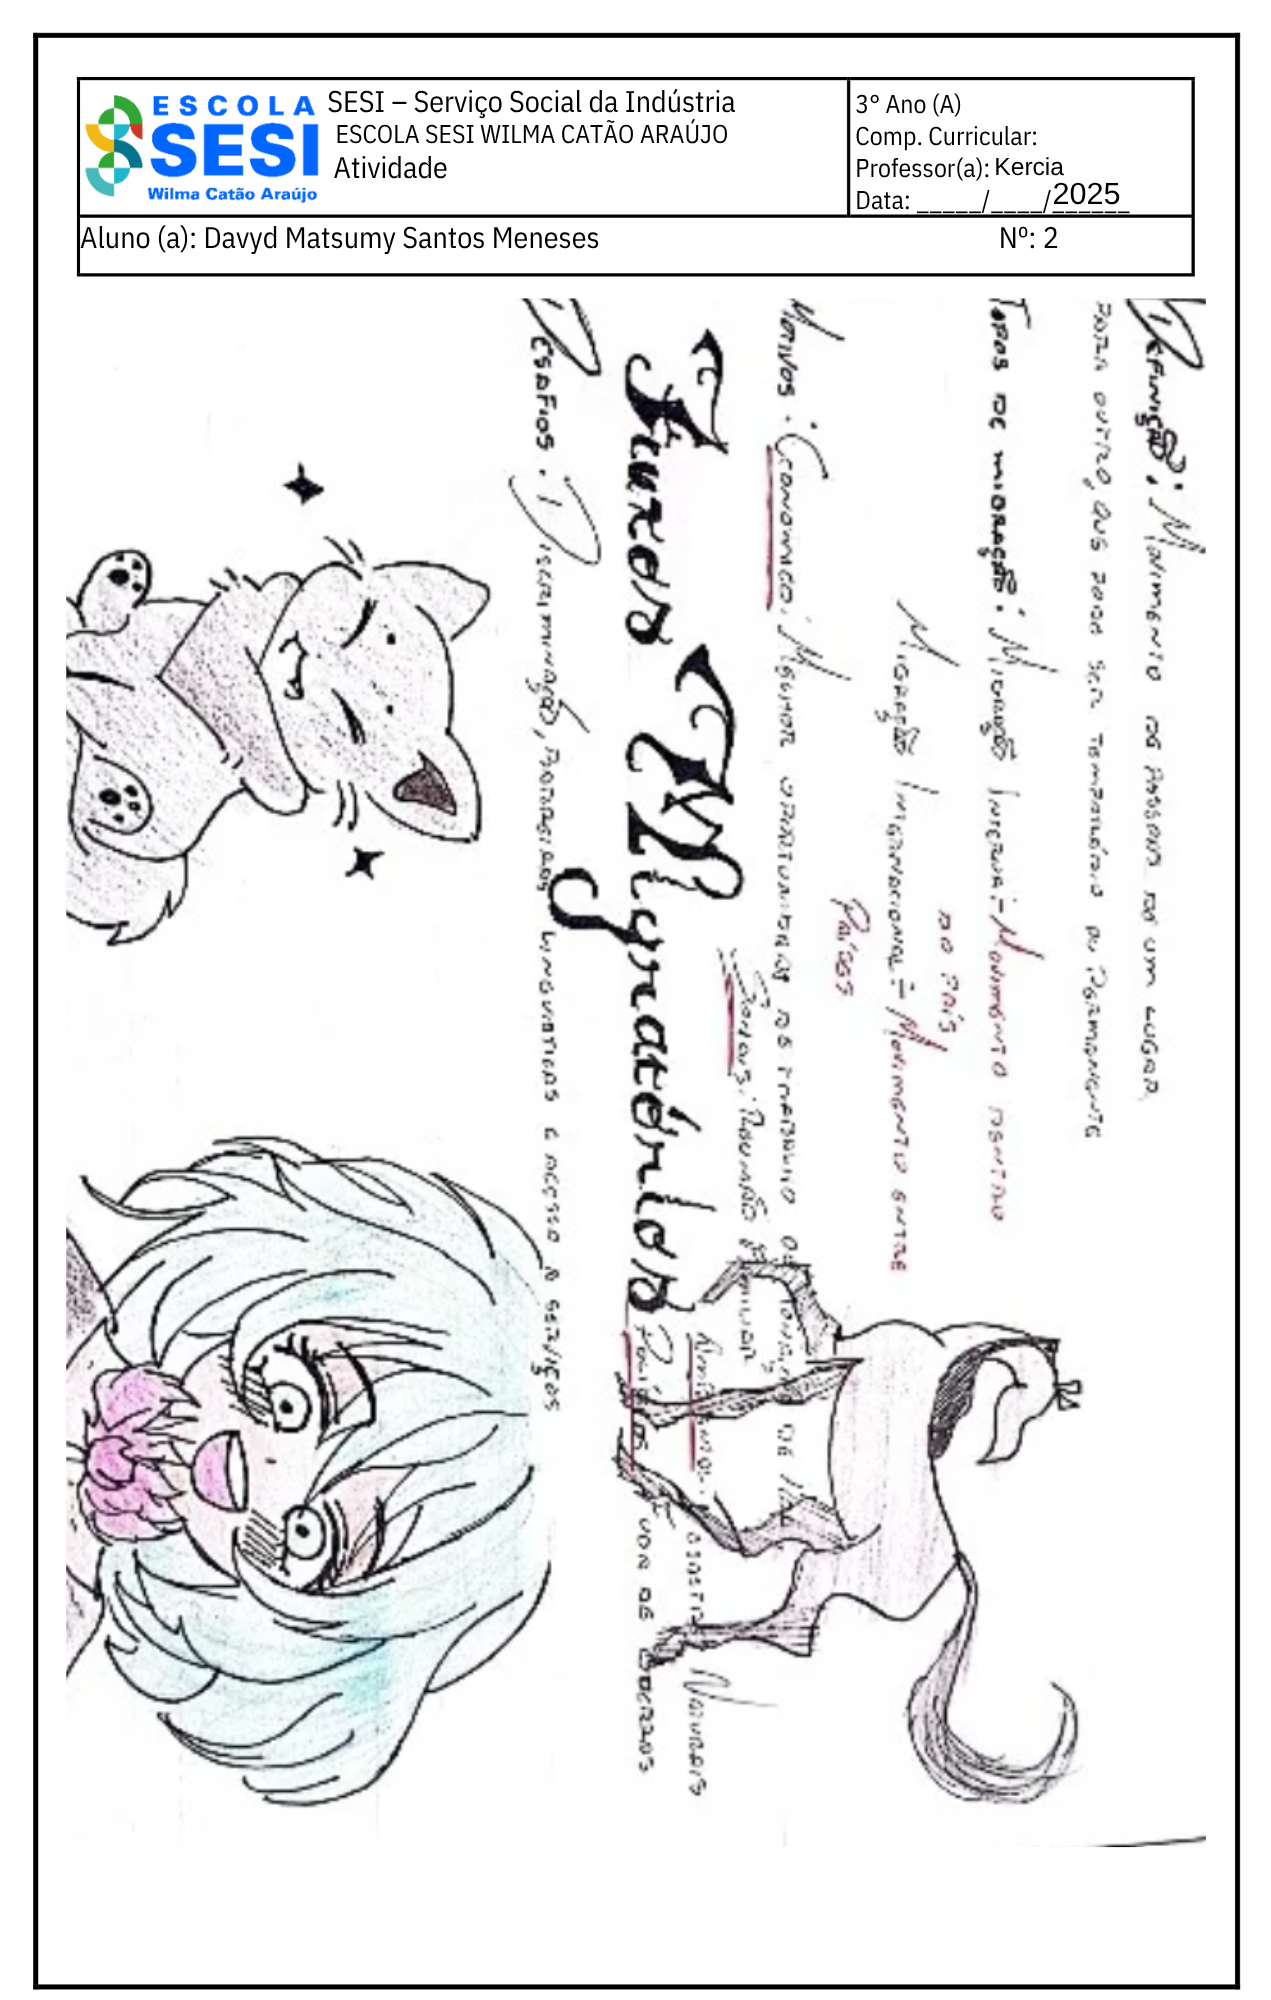 ESCOLA
SESI
Wilma Catão Araújo
SESI – Serviço Social da Indústria
ESCOLA SESI WILMA CATÃO ARAÚJO
Atividade
3° Ano (A)
Comp. Curricular:
Professor(a): Kercia
Data: _____/____/2025
Aluno (a): Davyd Matsumy Santos Meneses Nº: 2
Definição: Movimento de pessoa de um lugar
para outro, que pode ser temporário ou permanente
Tipos de migração: Migração Interna: Movimento dentro
do país
Migração Internacional: Movimento entre
Países
Motivos: Econômico: Melhor oportunidade de trabalho
Sociais: Reunião Familiar
Ambientais: Desastres Naturais
Políticos
Fluxos Migratórios
Desafios: Discriminação, Barreiras linguisticas e acesso a serviços